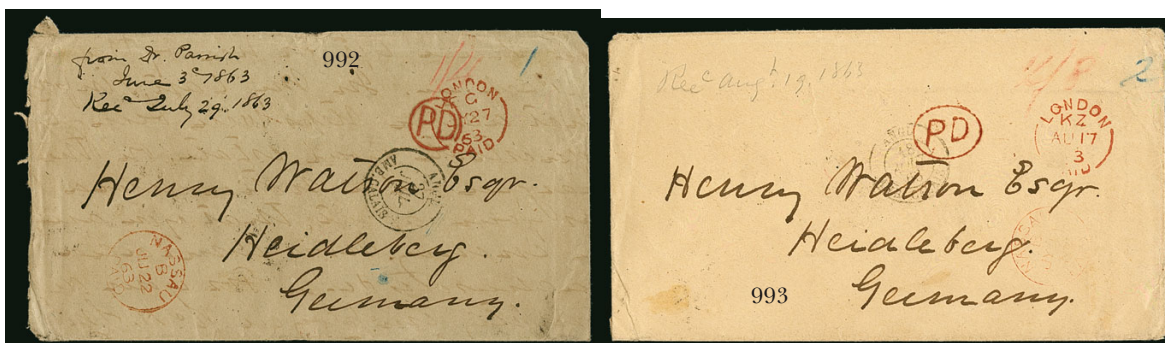 from Dr. Parrish
June 3ᵈ 1863
Recᵈ July 29. 1863
992
1
LONDON
C
27
63
PAID
PD
ANGL.
AMB.CALAIS
27
Henry Watson Esqr.
Heidleberg.
Germany.
NASSAU
B
JU 22
63
Recᵈ Augᵗ 19. 1863
2
PD
LONDON
KZ
AU 17
3
PAID
Henry Watson Esqr.
Heidleberg.
Germany.
993